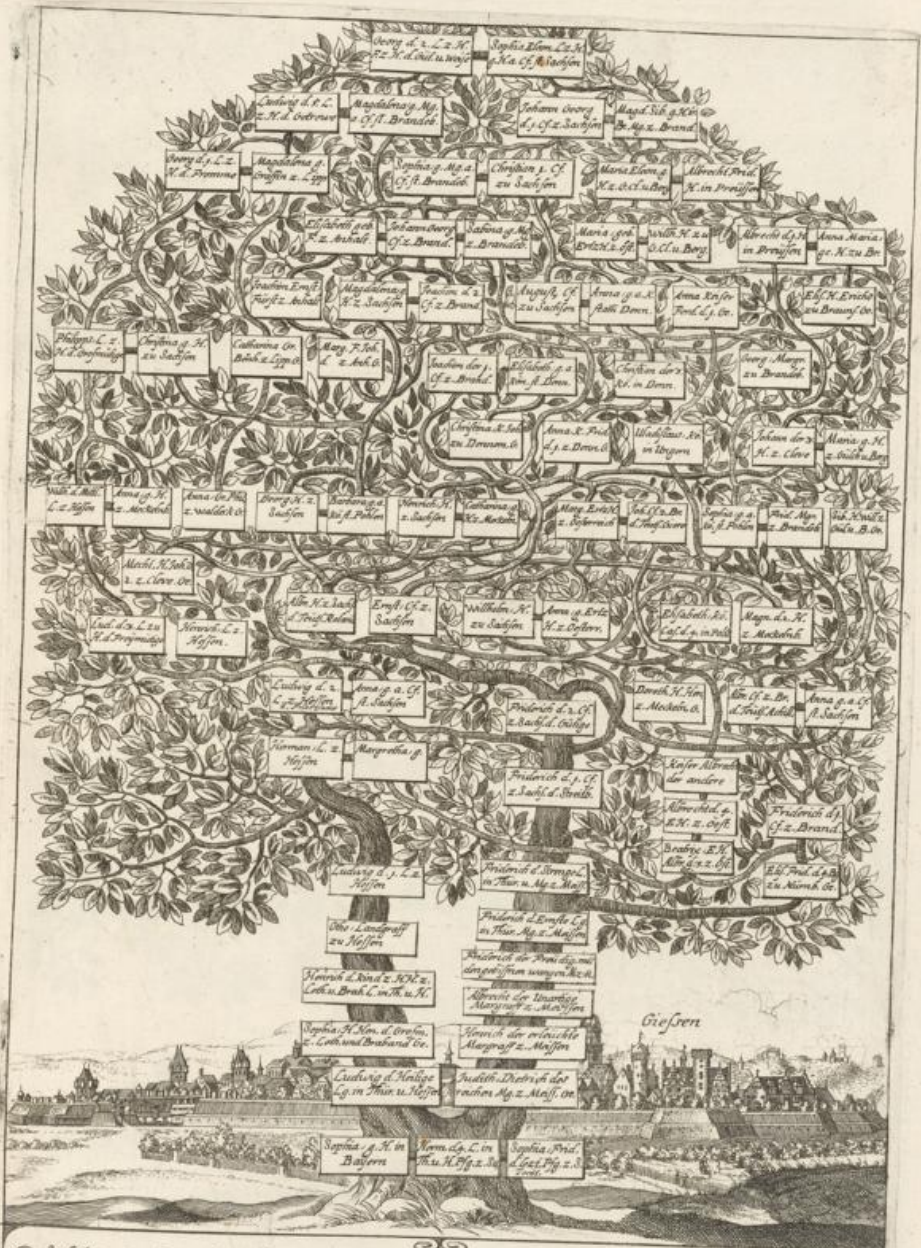 Georg d. 2. L. z. H.
F. z. H. d. Gül. u. Weise
Sophia Eleon. L. z. H.
g. H. a. Cf. st. Sachsen
Ludwig d. 5. L.
z. H. d. Getrewe
Magdalena g. Mg.
a. Cf. st. Brandeb.
Johann Georg
d. 1. Cf. z. Sachsen
Magd. Sib. g. H. in
Pr. Mg. z. Brand.
Georg d. 1. L. z.
H. d. Fromme
Magdalena g.
Gräffin z. Lipp
Sophia g. Mg. a.
Cf. st. Brandeb.
Christian 1. Cf.
zu Sachsen
Maria Eleon. g.
H. z. G. Cl. u. Berg
Albrecht Frid.
H. in Preüssen
Elisabeth geb.
F. z. Anhalt
Johann Georg
Cf. z. Brand.
Sabina g. Mg.
z. Brandeb.
Maria geb.
Ertz H. z. Ost.
Wilh. H. z. u
G. Cl. u. Berg
Albrecht d. j. H
in Preüssen
Anna Maria
ge. H. zu Br.
Joachim Ernst
Fürst z. Anhalt
Magdalena g.
H. z. Sachsen
Joachim d. 2
Cf. z. Brand.
August, Cf.
zu Sachsen
Anna g. a. K
statt Denn.
Anna Keiser
Ferd. d. j. Ge.
Elis. H. Erichs
zu Braunf. Ge.
Philipps L. z.
H. d. Grosmütige
Christina g. H.
zu Sachsen
Catharina Gr.
Bück z. Lipp G.
Marg. F. Joh.
d. z. Anh. G.
Joachim der j.
Cf. z. Brand.
Elisabeth g. a.
kön. st. Denn.
Christian der 2.
Kö. in Denn.
Georg Margr.
zu Brandeb.
Christina K. Joh.
zu Dennem. G.
Anna K. Frid.
d. j. z. Denn. G.
Uladislaus Kö.
in Ungern
Johann der 3.
H. z. Cleve
Maria g. H.
z. Gülch u. Berg
Wilh. d. Mitl.
L. z. Hessen
Anna g. H.
z. Meckelnb.
Anna Gr. Phil.
z. Waldeck G.
Georg H. z.
Sachsen
Barbara g. a.
kö. st. Pohlen
Henrich H.
z. Sachsen
Catharina g.
H. z. Meckeln.
Marg. Ertz H.
z. Österreich
Joh. Cf. z. Br.
d. Teütf. Cicero
Sophia g. a.
kö. st. Pohlen
Frid. Mgr.
z. Brandeb.
Sib. H. Wilh. z.
Gül. u. B. Gr.
Mecht. H. Joh.
z. z. Cleve. Ge.
Lud. d. 3. L. zu
H. d. Freijmütige
Henrich L. z
Hessen.
Albr. H. z. Sach.
d. Teutf. Rolan
Ernst Cf. z.
Sachsen
Wilhelm H.
zu Sachsen
Anna g. Ertz
H. z. Oesterr.
Elisabeth Kö.
Cas. d. 4. in Pohl.
Magn. d. 2. H.
z. Meckelnb.
Ludwig d. 2
L. z. Hessen
Anna g. a. Cf.
st. Sachsen
Friderich d. 2 Cf.
z. Sachs. d. Gütige
Doroth. H. Hen.
z. Meckeln. G.
Albr. Cf. z. Br.
d. Teutf. Achill.
Anna g. a. Cf.
st. Sachsen
Herman L. z.
Hessen
Margretha g.
Friderich d. 1. Cf.
z. Sachs. d. Streitb.
Keiser Albrecht
der andere
Albrecht d. 4.
E. H. z. Oest.
Beatrix E. H.
Albr. d. 3. z. Ost.
Friderich d. j.
Cf. z. Brand.
Elis. Frid. d. 4. B.
zu Nürnb. Ge.
Ludwig d. 1. L. z
Hessen
Friderich d. Strenge L.
in Thür. u. Mg. z. Meiss.
Otto Landgraff
zu Hessen
Friderich d. Ernste Lg.
in Thür. Mg. z. Meissen
Henrich d. Kind z. H. H. z.
Loth. u. Brab. L. in Th. u. H.
Friderich der Freudig. mit
den gebissnen wangen
Albrecht der Unartige
Margraff z. Meissen
Sophia H. Hen. d. Grosm.
z. Loth. und Braband Ge.
Henrich der erleuchte
Margraff z. Meissen
Giessen
Ludwig d. Heilige
Lg. in Thür. u. Hessen
Judith Dietrich des
reichen Mg. z. Meiss. Ge.
Sophia g. H. in
Bayern
Herm. d. j. L. in
Th. u. H. Pfg. z. Sa
Sophia Frid.